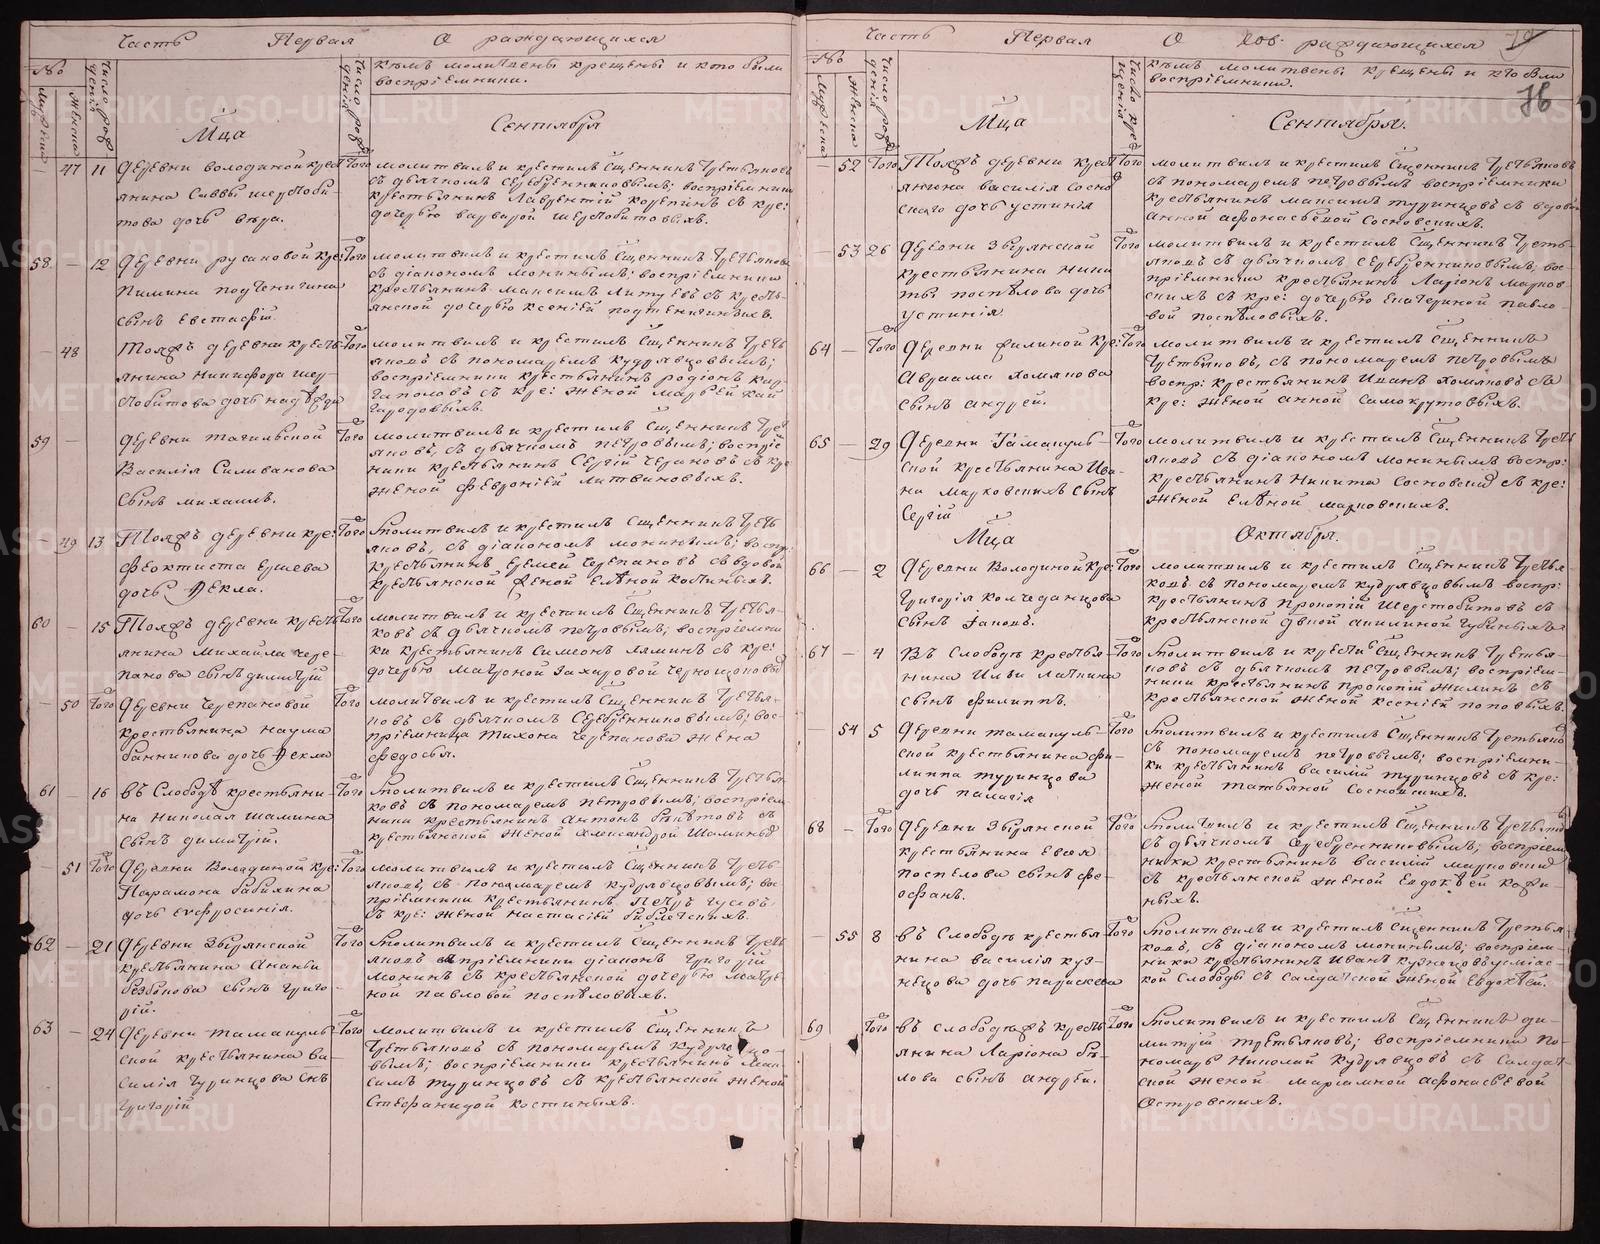 Часть Первая О раждающихся
№
Мужеска
Женска
Число рождения
Число рождения
кѣмъ молитвены крещены и кто были
воспріемники.
Мца Сентября
47 11 деревни володиной крест Того
янина Саввы шерстоби-
това дочь вѣра.
молитвилъ и крестилъ Сщенникъ Третьяковъ
съ дьячкомъ Серебренниковымъ; воспріемники
крестьянинъ Лаврентій съ кре:
дочерью варварой шерстобитовыхъ.
58 12 деревни русаковой кре: Того
Пимина
сынъ Евстафій.
молитвилъ и крестилъ Сщенникъ Третьяковъ
съ діакономъ Мокинымъ; воспріемники
крестьянинъ Максимъ съ кресть-
янской дочерью Ксеніей
48 Тояжъ деревни кресть- Того
янина Никифора шер-
стобитова дочь надѣжда
молитвилъ и крестилъ Сщенникъ Треть
яковъ съ пономаремъ Кудрявцовымъ;
воспріемники крестьянинъ родіонъ
съ кре: женой Марьей Кай
городовыхъ.
59 деревни тагильской Того
Василія Селиванова
сынъ михаилъ.
молитвилъ и крестилъ Сщенникъ Трет
яковъ, съ дьячкомъ Петровымъ; воспріе
ники крестьянинъ Сергій съ кре
женой февроніей литвиновыхъ.
49 13 Тояжъ деревни кре: Того
феоктиста Ершева
дочь Ѳекла.
Молитвилъ и крестилъ Сщенникъ Треть
яковъ, съ діакономъ мокинымъ; воспр:
крестьянинъ Еремей Черепановъ съ вдовой
крестьянской женой Еленой
60 15 Тояжъ деревни кресть Того
янина Михайла чере-
панова сынъ димитрій
молитвилъ и крестилъ Сщенникъ Третья-
ковъ съ дьячкомъ петровымъ; воспріемни
ки крестьянинъ Симеонъ съ кре:
дочерью матроной Захаровой
50 Того деревни Черепановой Того
крестьянина наума
банникова дочь Ѳекла
молитвилъ и крестилъ Сщенникъ Третья-
ковъ съ дьячкомъ Серебренниковымъ; вос-
пріемница Тихона Черепанова жена
федосья.
61 16 въ Слободѣ крестьяни- Того
на Николая шамина
сынъ димитрій.
Молитвилъ и крестилъ Сщенникъ Третья
ковъ съ пономаремъ Петровымъ; воспріем
ники крестьянинъ Антонъ съ
крестьянской женой Александрой Шаминыхъ
51 Того деревни Володиной кре: Того
Парамона бабихина
дочь еуфросинія.
молитвилъ и крестилъ Сщенникъ Треть
яковъ, съ пономаремъ Кудрявцовымъ; вос
пріемники крестьянинъ Петръ Гусевъ
съ кре: женой настасіей
62 21 деревни Зырянской Того
крестьянина Ананьи
безбокова сынъ григо-
рій.
Молитвилъ и крестилъ Сщенникъ Треть
яковъ воспріемники діаконъ Григорій
Мокинъ съ крестьянской дочерью матре
ной Павловой Поспѣловыхъ.
63 24 деревни тамакуль- Того
ской крестьянина ва-
силія Туринцова снъ
григорій
молитвилъ и крестилъ Сщенникъ
Третьяковъ съ пономаремъ Кудрявцо-
вымъ; воспріемники крестьянинъ Мак
симъ туринцовъ съ крестьянской женой
Стефанидой костиныхъ.
Часть Первая О раждающихся
76
№
Мужеска
Женска
Число рождения
Число крещения
кѣмъ молитвены крещены и кто были
воспріемники.
Мца Сентября.
52 Того Тояжъ деревни крест Того
янина василія Сосно
скаго дочь устинія
молитвилъ и крестилъ Сщенникъ Третьяковъ
съ пономаремъ петровымъ воспріемники
крестьянинъ максимъ туринцовъ съ вдовой
Анной афонасьевой Сосновскихъ.
53 26 деревни Зырянской Того
крестьянина Ники
ты поспѣлова дочь
устинія
молитвилъ и крестилъ Сщенникъ Треть-
яковъ съ дьячкомъ Серебренниковымъ; вос-
пріемники крестьянинъ Ларіонъ марков-
скихъ съ кре: дочерью Екатериной павло-
вой поспѣловыхъ.
64 Того деревни филиной Кре: Того
Авраама Хомякова
сынъ андрей.
молитвилъ и крестилъ Сщенникъ
Третьяковъ, съ пономаремъ петровымъ
воспр: крестьянинъ Иванъ Хомяковъ съ
кре: женой анной Самокрутовыхъ.
65 29 деревни Тамакуль- Того
ской крестьянина Ива-
на марковскихъ сынъ
Сергій
молитвилъ и крестилъ Сщенникъ Треть
яковъ съ діакономъ мокинымъ воспр:
крестьянинъ Никита Сосновский съ кре:
женой Еленой марковскихъ.
Мца Октября.
66 2 деревни Володиной кре: Того
григорія Колчеданцова
сынъ Іаковъ.
молитвилъ и крестилъ Сщенникъ Третья-
ковъ съ пономаремъ кудрявцовымъ воспр:
крестьянинъ прокопій Шерстобитовъ съ
крестьянской вдовой акилиной Губиныхъ
67 4 Въ Слободѣ крестья- Того
нина Ильи Лапкина
сынъ филиппъ.
Молитвилъ и крестилъ Сщенникъ Третья-
ковъ съ дьячкомъ Петровымъ; воспріем-
ники крестьянинъ прокопій жилинъ съ
крестьянской женой ксеніей поповыхъ.
54 5 деревни тамакуль- Того
ской крестьянина фи-
липпа туринцова
дочь палагія
Молитвилъ и крестилъ Сщенникъ Третьяко
съ пономаремъ петровымъ; воспріемни-
ки крестьянинъ василій туринцовъ съ кре:
женой татьяной Сосновскихъ.
68 Того деревни Зырянской Того
крестьянина Евсея
поспелова сынъ фе-
офанъ.
Молитвилъ и крестилъ Сщенникъ Третьяко
съ дьячкомъ Серебренниковымъ; воспріем
ники крестьянинъ василій марковский
съ крестьянской женой Евдокѣей кофи-
ныхъ.
55 8 въ Слободѣ крестья- Того
нина василія куз-
нецова дочь параскева
Молитвилъ и крестилъ Сщенникъ Третья-
ковъ, съ діакономъ мокинымъ; воспріем-
ники крестьянинъ Иванъ кузнецовъ
кой Слободы съ салдатской женой Евдокѣей.
69 Того въ слободѣтожъ кресть Того
янина Ларіона бѣ-
лова сынъ андрей.
Молитвилъ и крестилъ Сщенникъ ди-
митрій третьяковъ; воспріемники По-
номарь Николай Кудрявцовъ съ Салдат
ской женой маріамной афонасьевой
Островскихъ.
METRIKI.GASO-URAL.RU